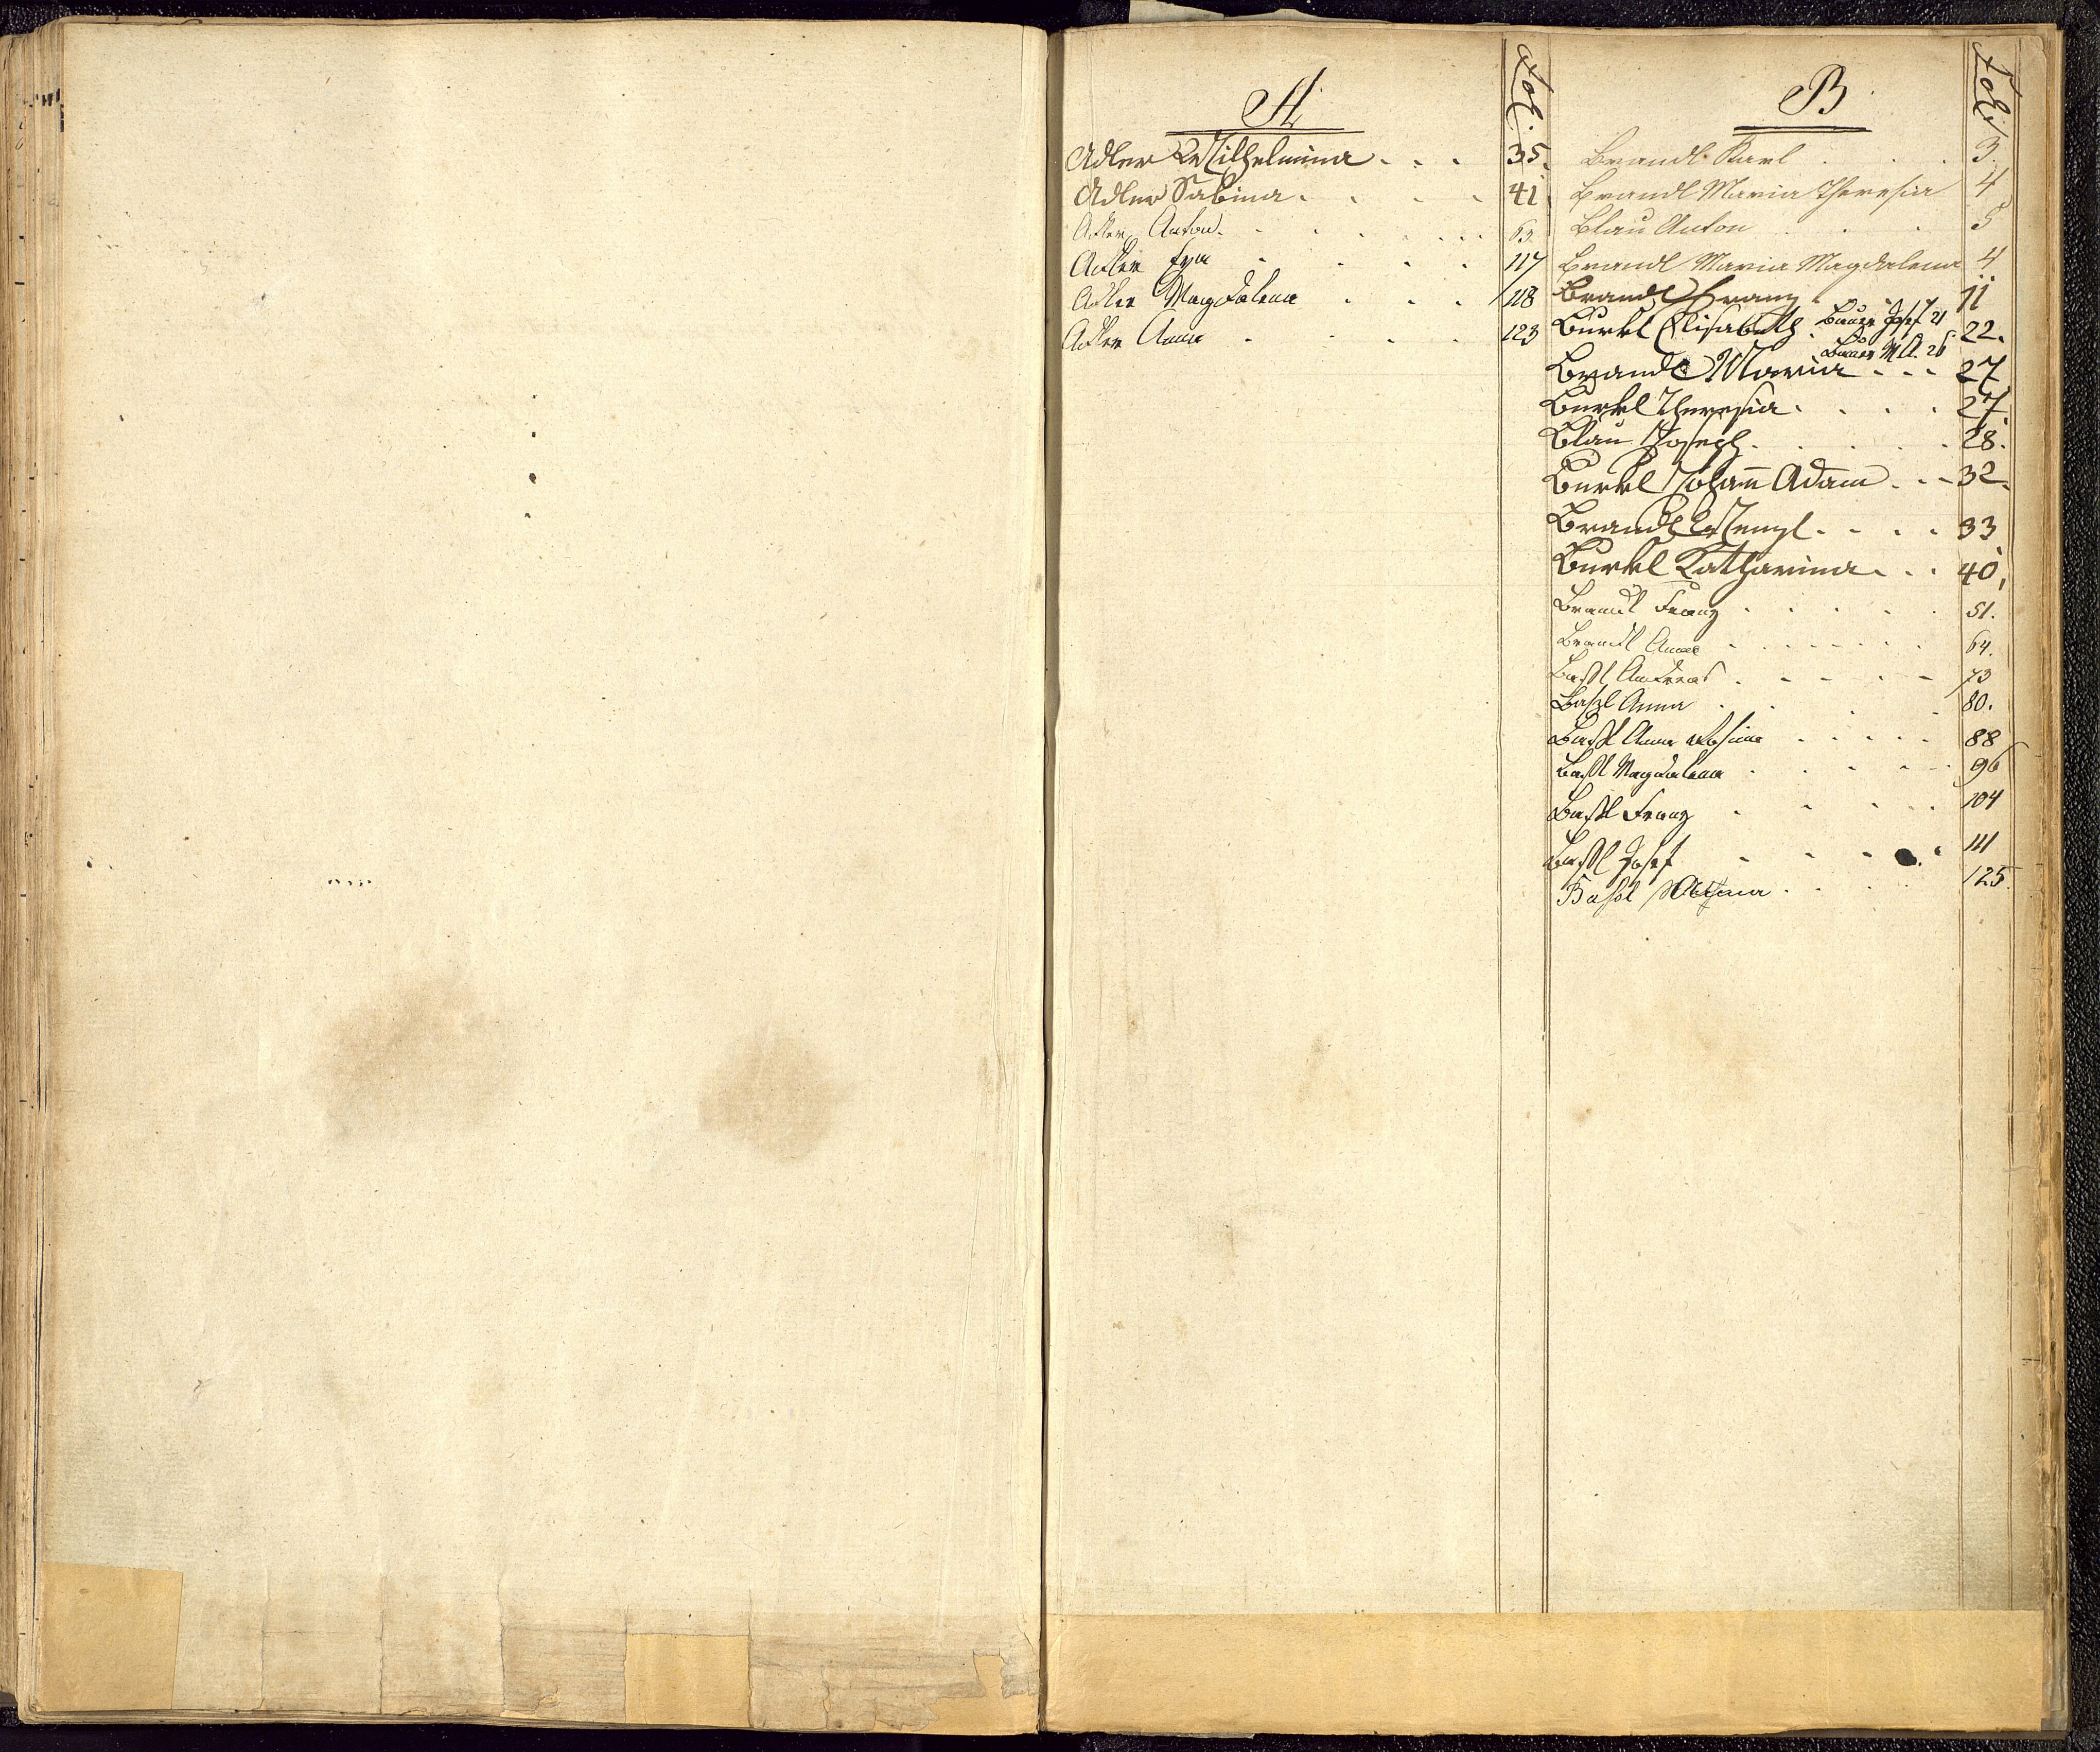 A
Fol.
Adler Wilhelmina . . . 35.
Adler Sabina . . . . 41
Adler Anton . . . . 63
Adler Eva . . . . 117
Adler Magdalena . . . 118
Adler Anna . . . . 123
B
Fol.
Brandl Karl . . . 3.
Brandl Maria Theresia 4
Blau Anton . . . 5
Brandl Maria Magdalena 4
Brandl Franz . 11
Bauer Josef 21
Burkl Elisabeth . 22.
Bauer M. A. 26
Brandl Maria . . . 27
Burkl Theresia . . . . 27.
Blau Joseph . . . . 28.
Burkl Johann Adam . . . 32.
Brandl Wenzl . . . . 33
Burkl Katharina . . . 40,
Brandl Franz . . . . . 51.
Brandl Anna . . . . . . . 64.
Baßl Andreas . . . . . 73
Baßl Anna . . . . 80.
Baßl Anna . . . . . 88
Baßl Magdalena . . . . . 96
Baßl Franz . . . . . 104
Baßl Josef . . . . . 111
Baßl . . . . 125.